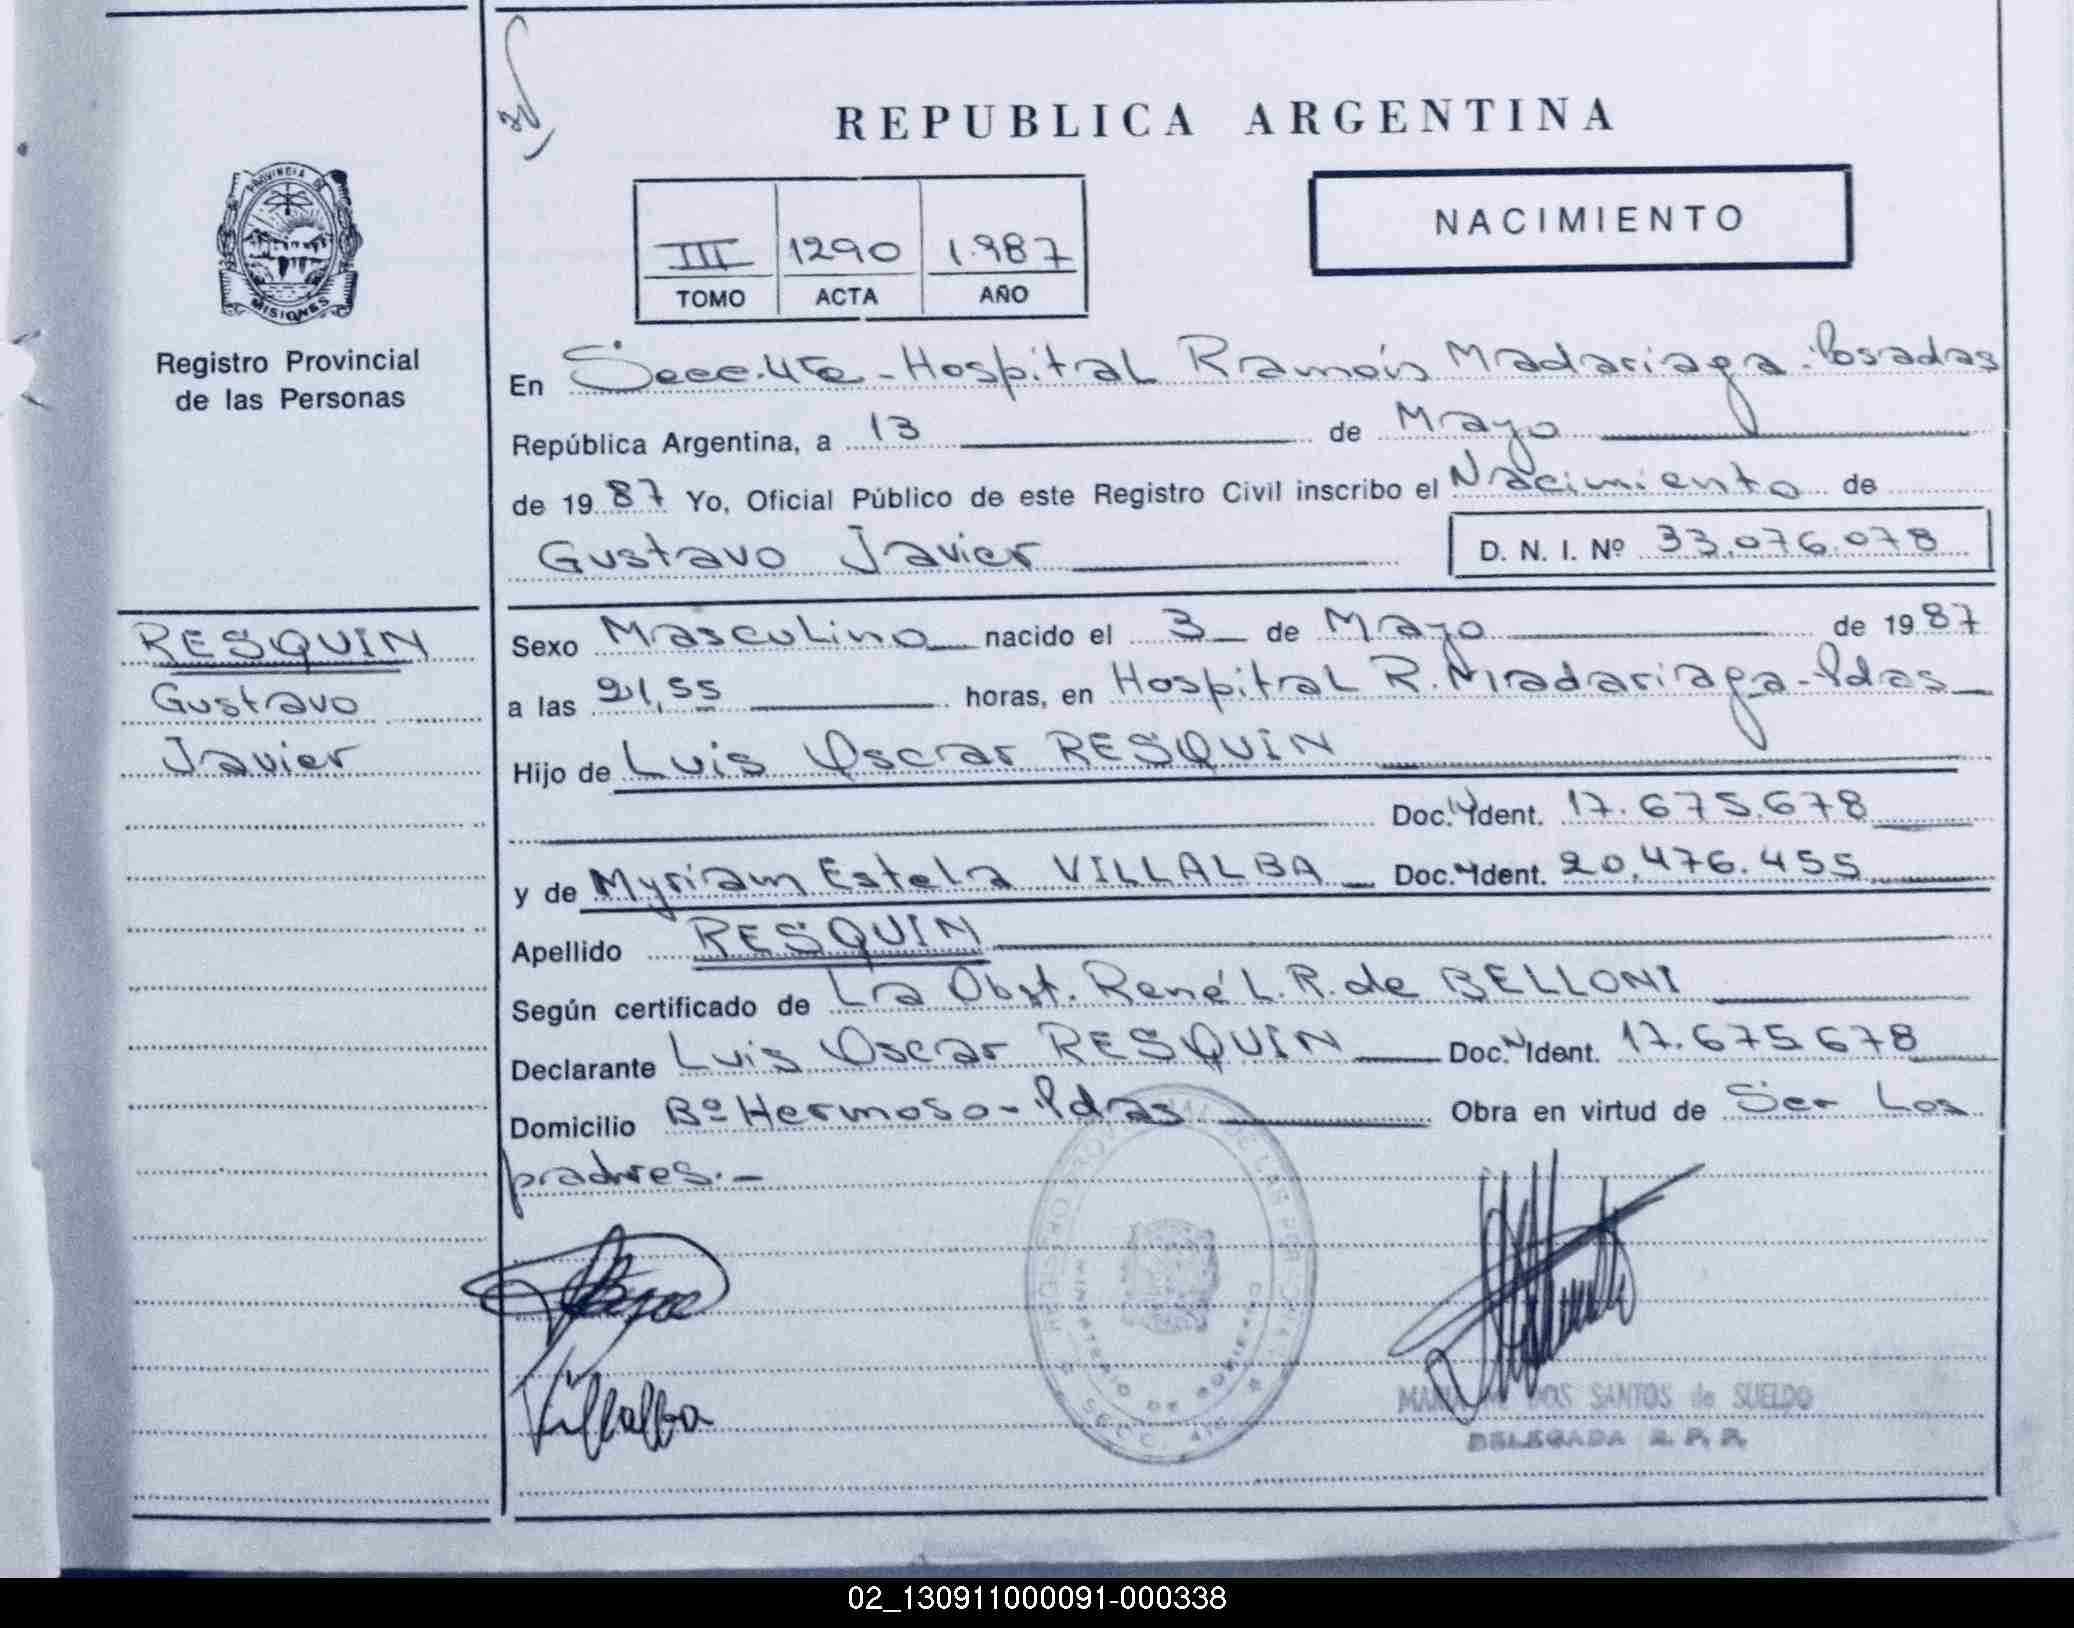 REPUBLICA ARGENTINA
NACIMIENTO
III 1290 1.987
TOMO ACTA AÑO
PROVINCIA DE MISIONES
Registro Provincial
de las Personas
En Secc. 4ta - Hospital Ramón Madariaga. Posadas
República Argentina, a 13 de Mayo
de 1987 Yo, Oficial Público de este Registro Civil inscribo el Nacimiento de
Gustavo Javier D. N. I. Nº 33.076.078
RESQUIN
Gustavo
Javier
Sexo Masculino nacido el 3 de Mayo de 1987
a las 21,55 horas, en Hospital R. Madariaga - Pdas
Hijo de Luis Oscar RESQUIN
Doc. Ident. 17.675.678
y de Myriam Estela VILLALBA Doc. Ident. 20.476.455
Apellido RESQUIN
Según certificado de La Obst. René L. R. de BELLONI
Declarante Luis Oscar RESQUIN Doc. Ident. 17.675.678
Domicilio Bº Hermoso - Pdas Obra en virtud de Ser Los
padres.-
Villalba
REGISTRO PROVINCIAL DE LAS PERSONAS
MINISTERIO DE GOBIERNO
SECC. 4ta
DOS SANTOS de SUELDO
DELEGADA R. P. P.
02_130911000091-000338